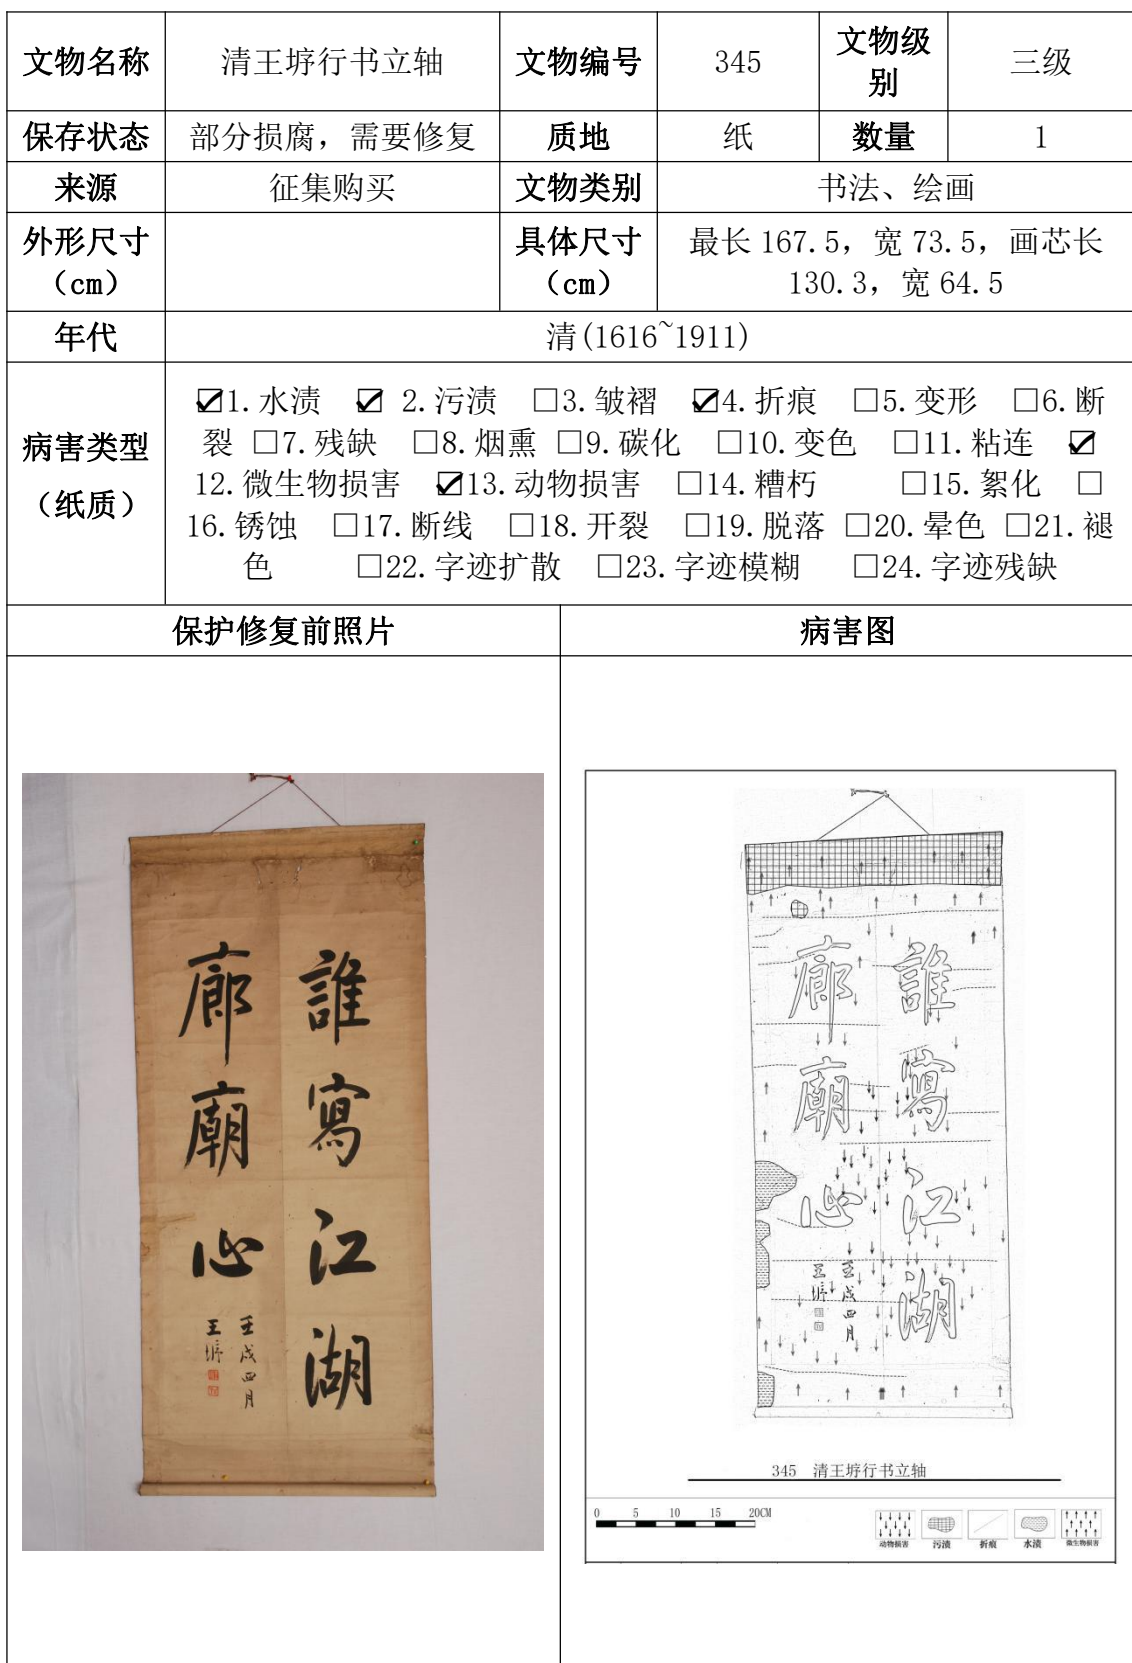 文物名称 清王垿行书立轴 文物编号 345 文物级别 三级
保存状态 部分损腐，需要修复 质地 纸 数量 1
来源 征集购买 文物类别 书法、绘画
外形尺寸（cm） 具体尺寸（cm） 最长 167.5，宽 73.5，画芯长 130.3，宽 64.5
年代 清(1616~1911)
病害类型（纸质）
☑1.水渍 ☑ 2.污渍 □3.皱褶 ☑4.折痕 □5.变形 □6.断
裂 □7.残缺 □8.烟熏 □9.碳化 □10.变色 □11.粘连 ☑
12.微生物损害 ☑13.动物损害 □14.糟朽 □15.絮化 □
16.锈蚀 □17.断线 □18.开裂 □19.脱落 □20.晕色 □21.褪
色 □22.字迹扩散 □23.字迹模糊 □24.字迹残缺
保护修复前照片 病害图
誰寫江湖
廊廟心
壬戌四月
王垿
誰寫江湖
廊廟心
壬戌四月
王垿
345 清王垿行书立轴
0 5 10 15 20CM
动物损害 污渍 折痕 水渍 微生物损害